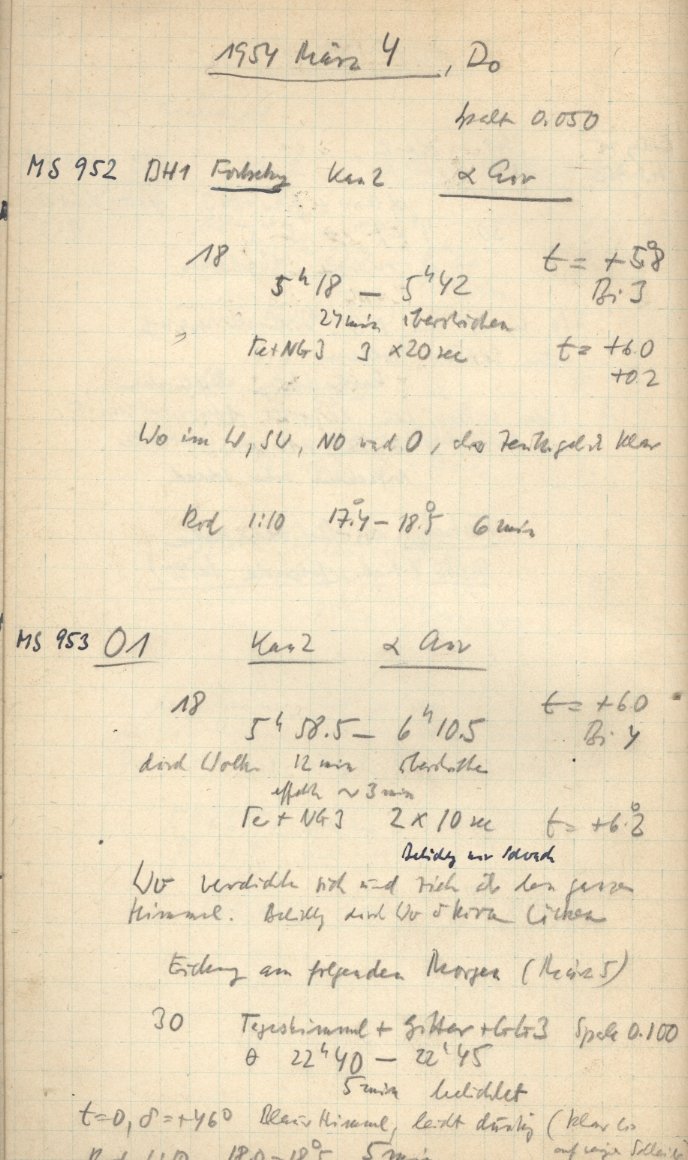 1954 März 4, Do
Spalt 0.050
MS 952 BH1 Fortsetzg Kas2 α Aur
18 t = +5°.8
5ʰ18 – 5ʰ42 Bi 3
24 min überstrichen
Fe+NG3 3 × 20 sec t = +6.0
+0.2
Wo im W, SW, NO und O, das Zenithgebiet klar
Rod 1:10 17°.4 – 18°.5 6 min
MS 953 O1 Kas2 α Aur
18 t = +6.0
5ʰ58.5 – 6ʰ10.5 Bi 4
durch Wolken 12 min überstrichen
effektiv ~ 3 min
Fe + NG3 2 × 10 sec t = +6°.2
Belichtg nur schwach
Wo verdichten sich und ziehn über den ganzen
Himmel. Belichtg durch Wo Lücken
Eichung am folgenden Morgen (März 5)
30 Tageshimmel + Gitter + 3 Spalt 0.100
θ 22ʰ40 – 22ʰ45
5 min belichtet
t=0, δ=+46° Blauer Himmel, leicht dunstig (klar
auf
Rod 1:10 18.0 – 18°.5 5 min